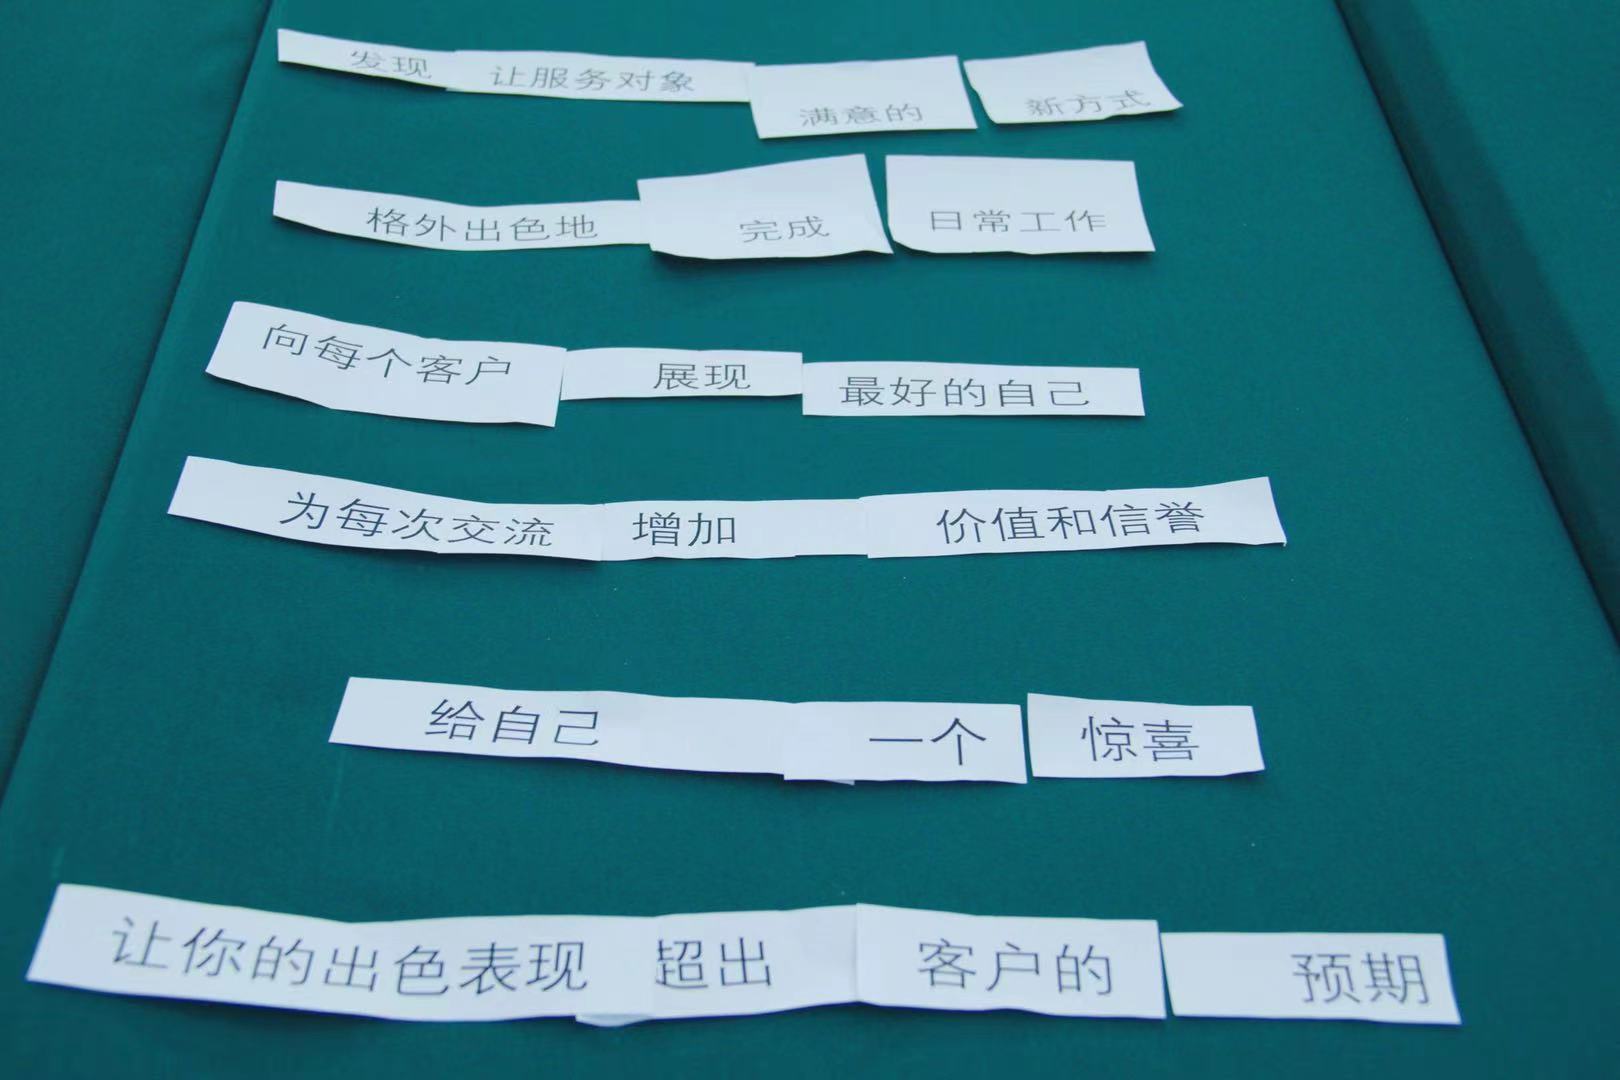 发现 让服务对象 满意的 新方式
格外出色地 完成 日常工作
向每个客户 展现 最好的自己
为每次交流 增加 价值和信誉
给自己 一个 惊喜
让你的出色表现 超出 客户的 预期